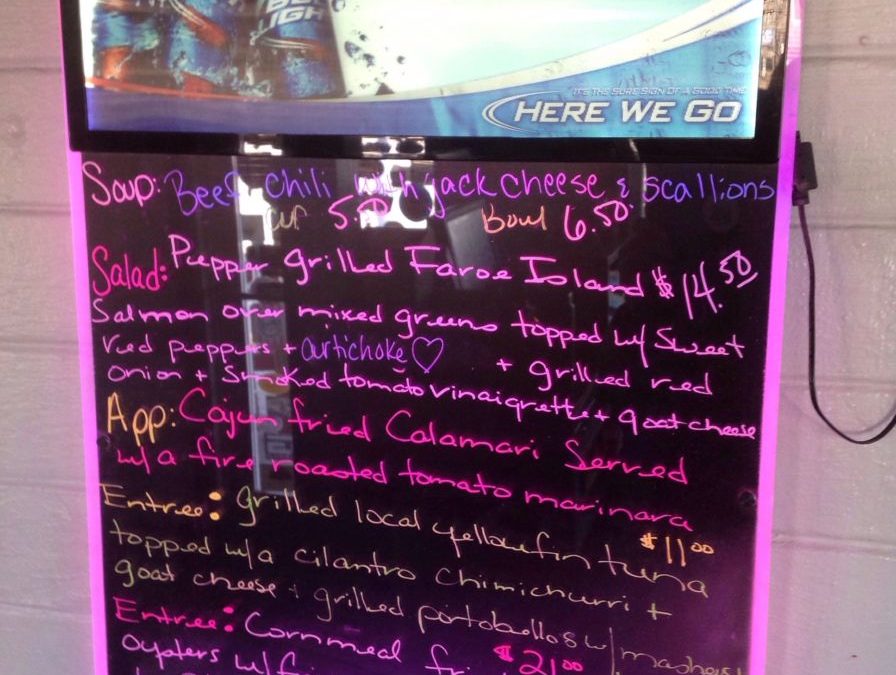 BUD
LIGHT
IT'S THE SURE SIGN OF A GOOD TIME
HERE WE GO
Soup: Beef chili with jack cheese & scallions
cup 5.50 Bowl 6.50
Salad: Pepper grilled Faroe Island $14.50
Salmon over mixed greens topped w/ Sweet
red peppers + artichoke ♡ + grilled red
onion + Smoked tomato vinaigrette + goat cheese
App: Cajun fried Calamari Served
w/ a fire roasted tomato marinara
$11.00
Entree: grilled local yellowfin tuna
topped w/ a cilantro chimichurri +
goat cheese + grilled portobellos w/ mashers
$21.00
Entree: Cornmeal
oysters w/